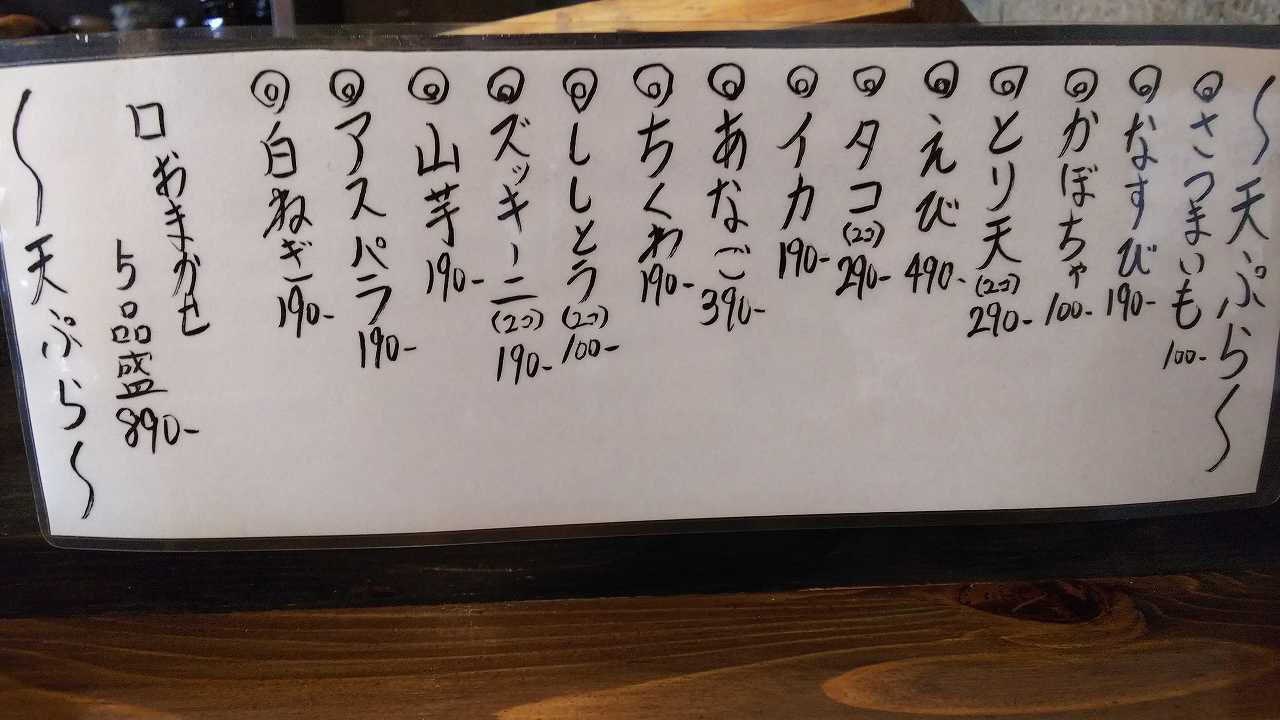 〜天ぷら〜
◎さつまいも 100-
◎なすび 190-
◎かぼちゃ 100-
◎とり天(2コ) 290-
◎えび 490-
◎タコ(2コ) 290-
◎イカ 190-
◎あなご 390-
◎ちくわ 190-
◎ししとう(2コ) 100-
◎ズッキーニ(2コ) 190-
◎山芋 190-
◎アスパラ 190-
◎白ねぎ 190-
□おまかせ
5品盛 890-
〜天ぷら〜